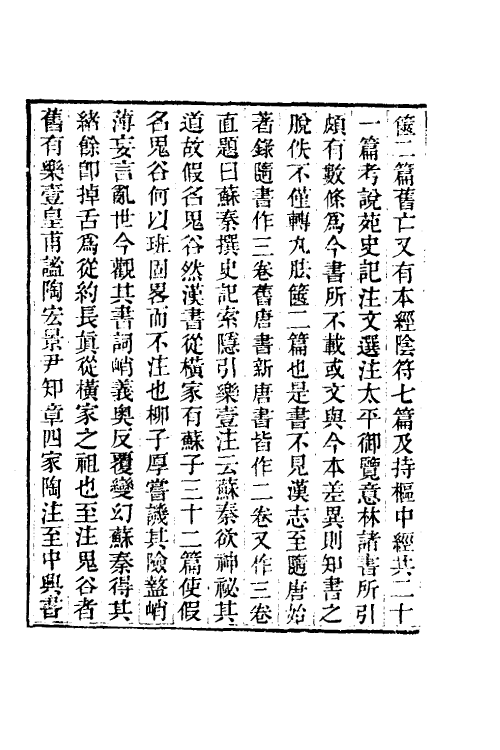 篋二篇舊亡又有本經陰符七篇及持樞中經共二十
一篇考說苑史記注文選注太平御覽意林諸書所引
頗有數條爲今書所不載或文與今本差異則知書之
脫佚不僅轉丸胠篋二篇也是書不見漢志至隨唐始
著錄隨書作三卷舊唐書新唐書皆作二卷又作三卷
直題曰蘇秦撰史記索隱引樂壹注云蘇秦欲神祕其
道故假名鬼谷然漢書從橫家有蘇子三十二篇使假
名鬼谷何以班固畧而不注也柳子厚嘗譏其險盭峭
薄妄言亂世今觀其書詞峭義奧反覆變幻蘇秦得其
緒餘卽掉舌爲從約長眞從橫家之祖也至注鬼谷者
舊有樂壹皇甫謐陶宏景尹知章四家陶注至中興書